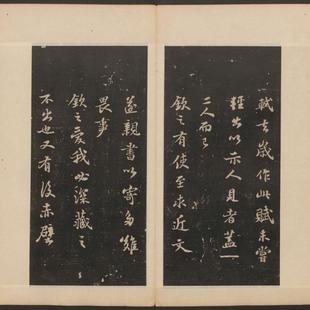 軾去歲作此賦未嘗
輕出以示人見者蓋一
二人而已
欽之有使至求近文
遂親書以寄多難
畏事
欽之愛我必深藏之
不出也又有後赤壁